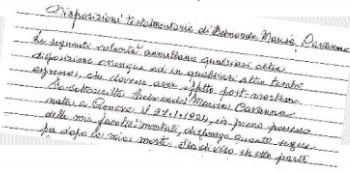 Disposizioni testamentarie di Edmonda Marisa Canavero
Le seguenti volontà annullano qualsiasi altra
disposizione ovunque ed in qualsiasi altro tempo
espressa, che dovesse aver effetto post-mortem.
Io sottoscritta Marisa Canavero
nata a Genova il 27.1.1924, in pieno possesso
delle mie facoltà mentali, dispongo quanto segue
dopo la mia morte. sia diviso in sette parti